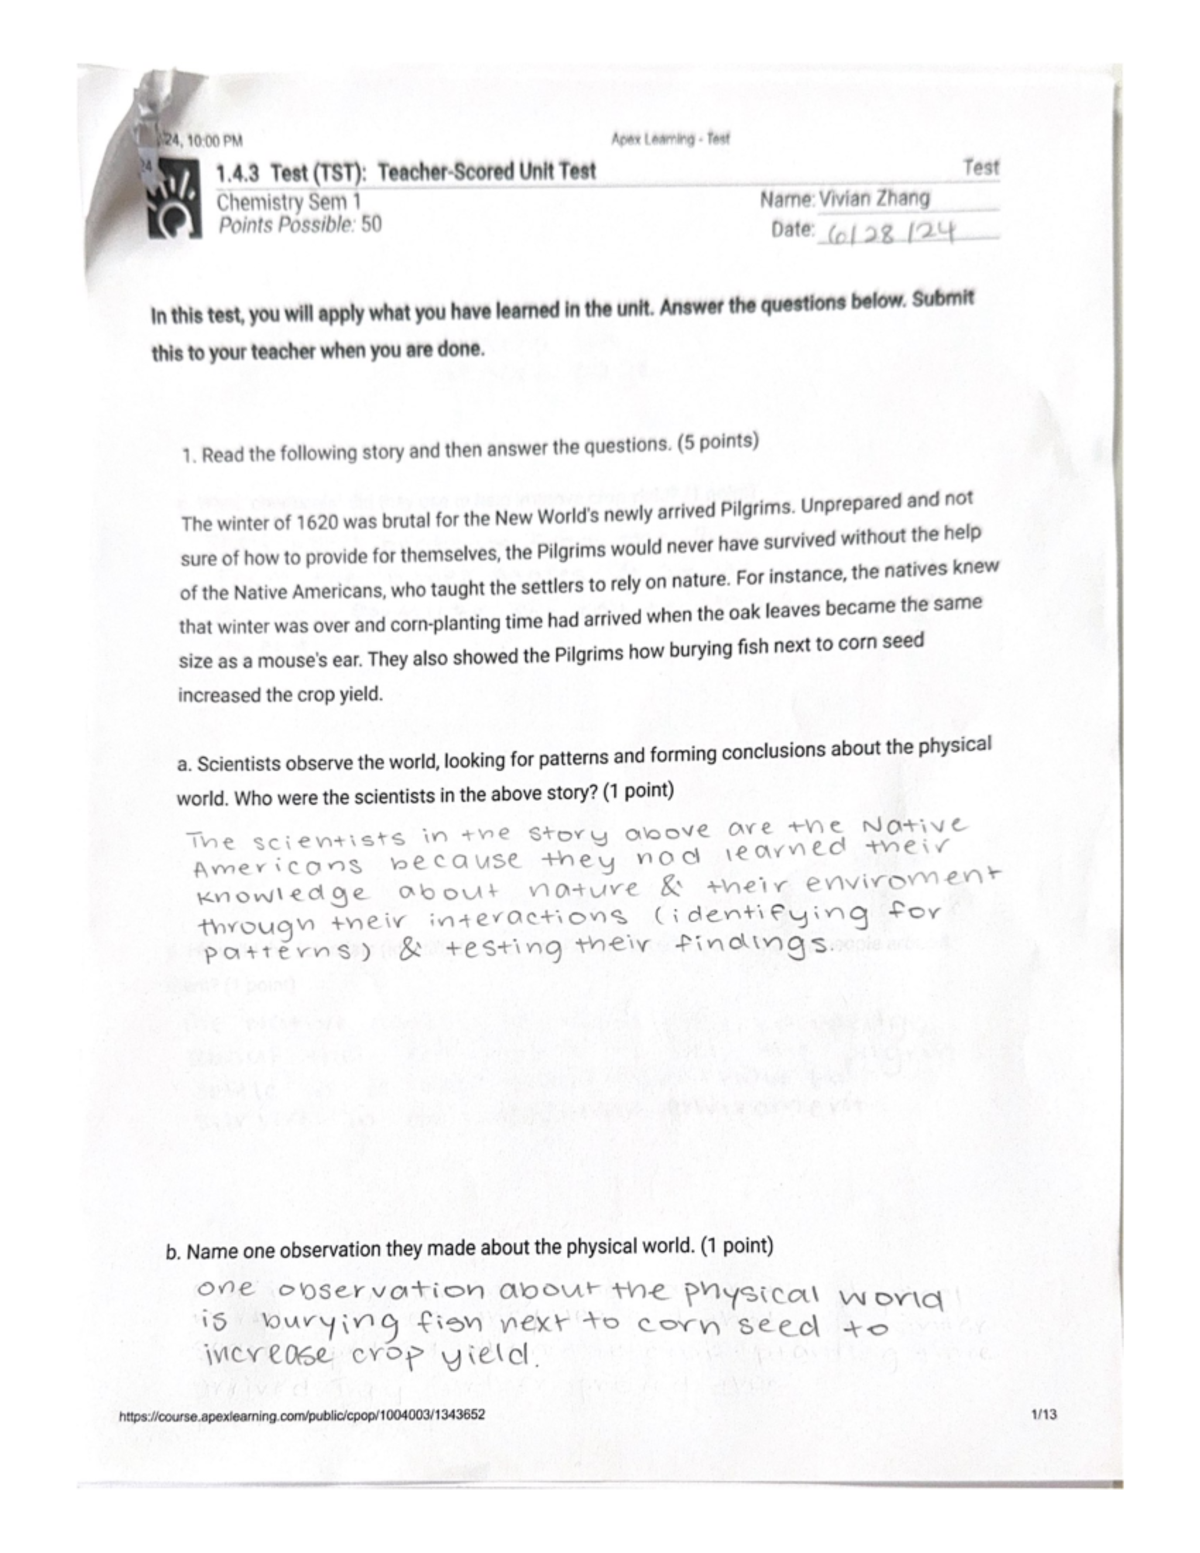 24, 10:00 PM
Apex Learning - Test
1.4.3 Test (TST): Teacher-Scored Unit Test
Test
Chemistry Sem 1
Name: Vivian Zhang
Points Possible: 50
Date: 6/28/24
In this test, you will apply what you have learned in the unit. Answer the questions below. Submit
this to your teacher when you are done.
1. Read the following story and then answer the questions. (5 points)
The winter of 1620 was brutal for the New World's newly arrived Pilgrims. Unprepared and not
sure of how to provide for themselves, the Pilgrims would never have survived without the help
of the Native Americans, who taught the settlers to rely on nature. For instance, the natives knew
that winter was over and corn-planting time had arrived when the oak leaves became the same
size as a mouse's ear. They also showed the Pilgrims how burying fish next to corn seed
increased the crop yield.
a. Scientists observe the world, looking for patterns and forming conclusions about the physical
world. Who were the scientists in the above story? (1 point)
The scientists in the story above are the Native
Americans because they had learned their
knowledge about nature & their enviroment
through their interactions (identifying for
patterns) & testing their findings.
b. Name one observation they made about the physical world. (1 point)
one observation about the physical world
is burying fish next to corn seed to
increase crop yield.
https://course.apexlearning.com/public/cpop/1004003/1343652
1/13